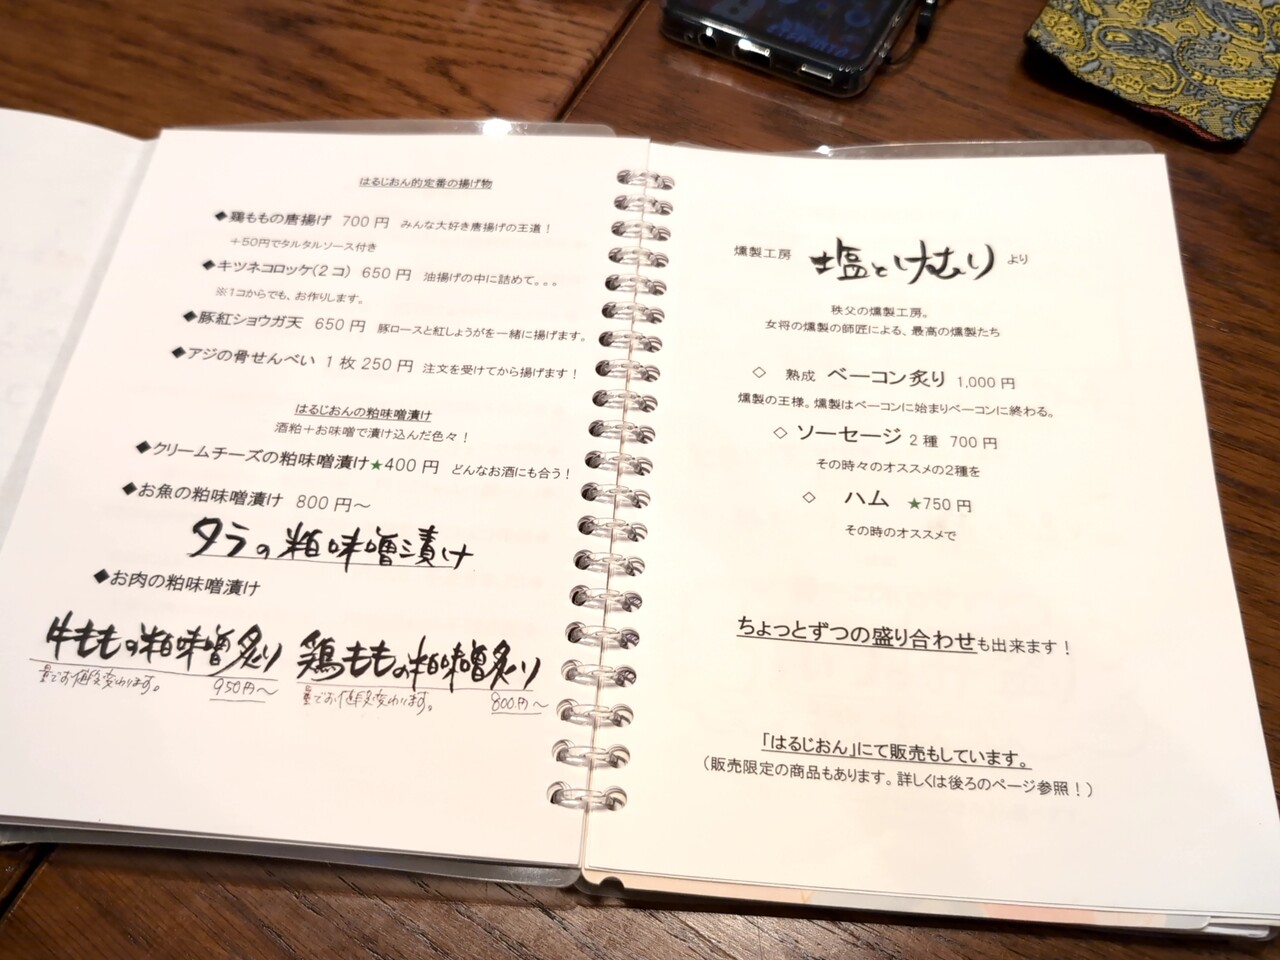 はるじおん的定番の揚げ物
◆鶏ももの唐揚げ 700円 みんな大好き唐揚げの王道!
+50円でタルタルソース付き
◆キツネコロッケ(2コ) 650円 油揚げの中に詰めて。。。
※1コからでも、お作りします。
◆豚紅ショウガ天 650円 豚ロースと紅しょうがを一緒に揚げます。
◆アジの骨せんべい 1枚250円 注文を受けてから揚げます!
はるじおんの粕味噌漬け
酒粕+お味噌で漬け込んだ色々!
◆クリームチーズの粕味噌漬け★400円 どんなお酒にも合う!
◆お魚の粕味噌漬け 800円~
タラの粕味噌漬け
◆お肉の粕味噌漬け
牛ももの粕味噌炙り
量でお値段変わります。 950円~
鶏ももの粕味噌炙り
量でお値段変わります。 800円~
燻製工房 塩とけむり より
秩父の燻製工房。
女将の燻製の師匠による、最高の燻製たち
◇ 熟成 ベーコン炙り 1,000円
燻製の王様。燻製はベーコンに始まりベーコンに終わる。
◇ ソーセージ 2種 700円
その時々のオススメの2種を
◇ ハム ★750円
その時のオススメで
ちょっとずつの盛り合わせも出来ます!
「はるじおん」にて販売もしています。
(販売限定の商品もあります。詳しくは後ろのページ参照!)